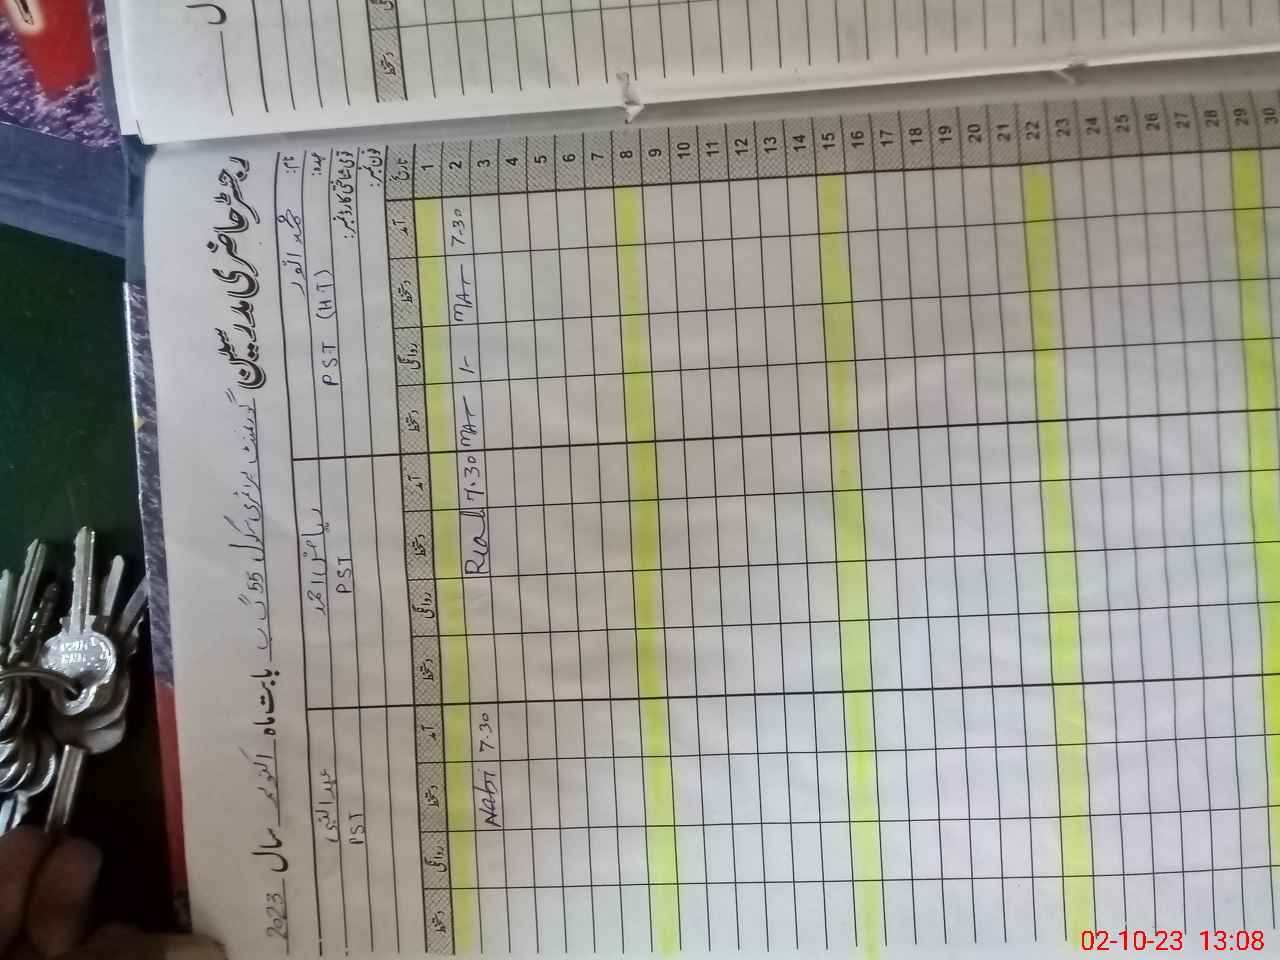 رجسٹر حاضری مدرسین گورنمنٹ پرائمری سکول 55 گ ب بابت ماہ اکتوبر سال 2023
نام: محمد انور ریاض احمد عبدالنبی
عہدہ: PST (HT) PST PST
قومی شناختی کارڈ نمبر:
فون نمبر:
تاریخ آمد دستخط روانگی دستخط آمد دستخط روانگی دستخط آمد دستخط روانگی دستخط
1
2 7-30 MAT 1- MAT 7.30 Riad 7.30 Nabi
3
4
5
6
7
8
9
10
11
12
13
14
15
16
17
18
19
20
21
22
23
24
25
26
27
28
29
30
02-10-23 13:08